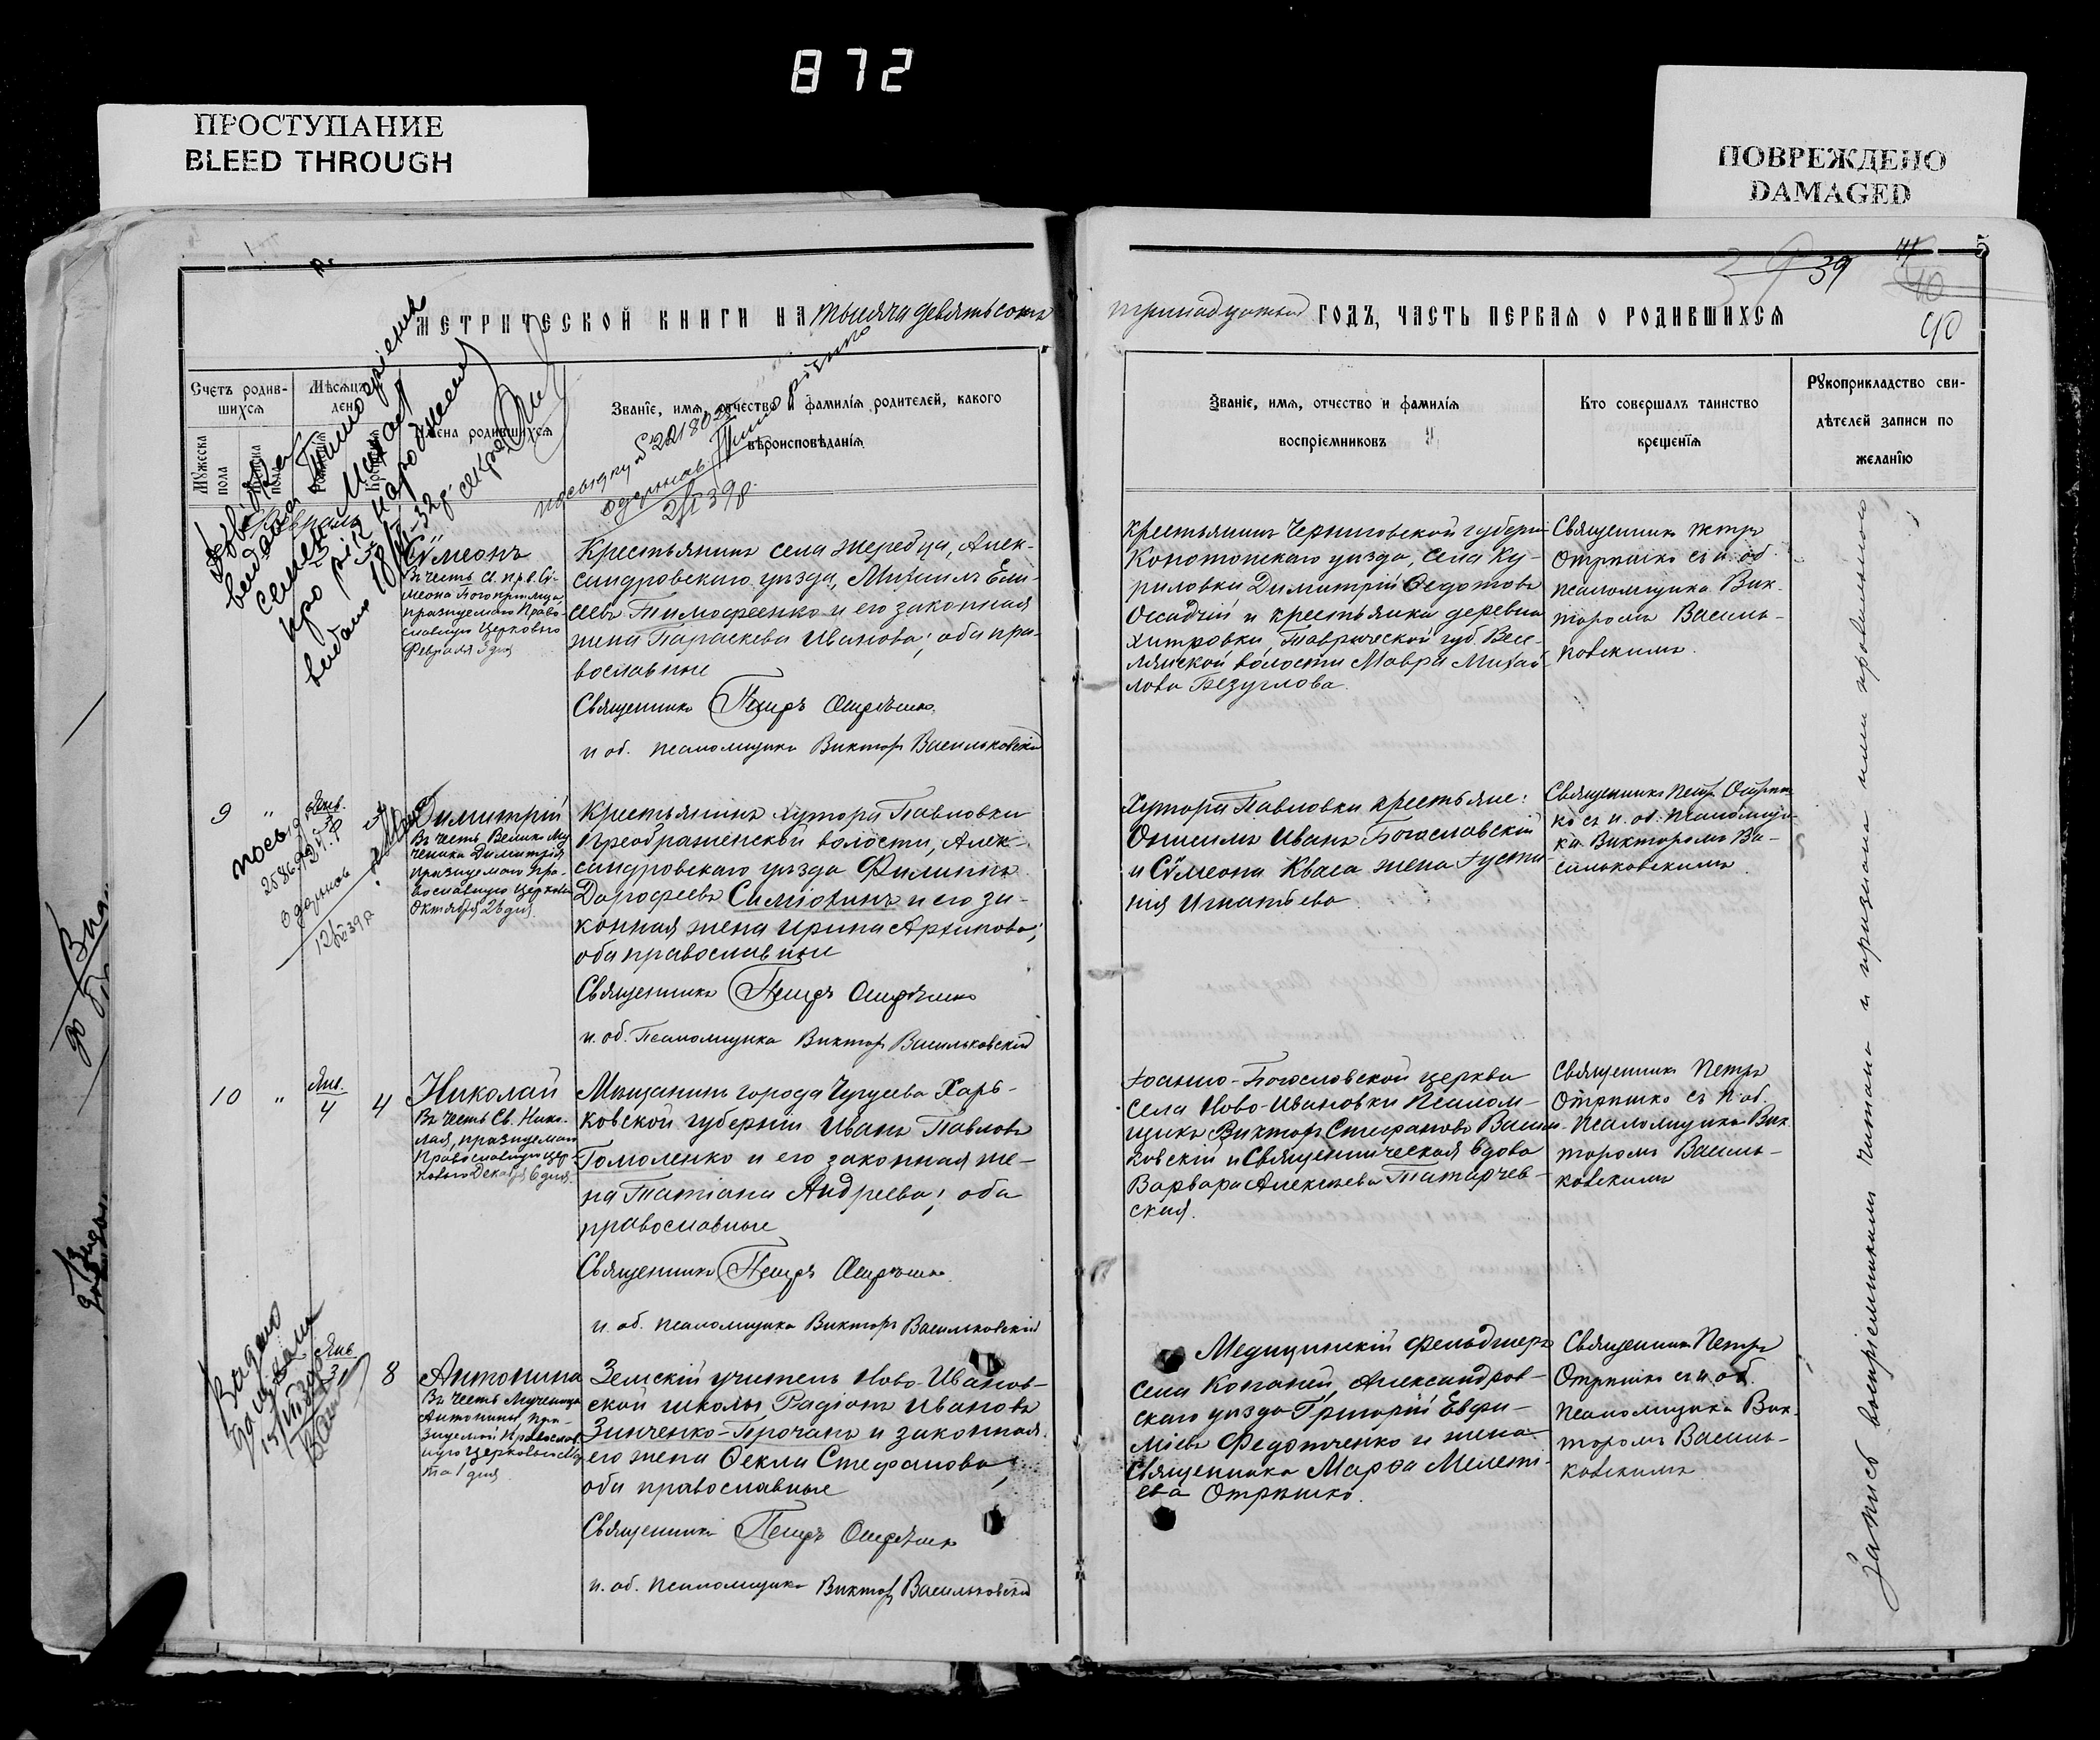 872
ПРОСТУПАНИЕ
BLEED THROUGH
ПОВРЕЖДЕНО
DAMAGED
5
39
41
40
40
МЕТРИЧЕСКОЙ КНИГИ НА тысяча девятьсотъ
тринадцатый ГОДЪ, ЧАСТЬ ПЕРВАЯ О РОДИВШИХСЯ
Счетъ родив-
шихся
Мужеска
пола
Женска
пола
Мѣсяцъ
день
Имена родившихся
Званіе, имя, отчество и фамилія родителей, какого
вѣроисповѣданія
Званіе, имя, отчество и фамилія
воспріемниковъ
Кто совершалъ таинство
крещенія
Рукоприкладство сви-
дѣтелей записи по
желанію
Февраль
Сѵмеонъ
Въ честь Св. пр. Сѵ-
меона Богопріимца
празднуемаго Право-
славную Церковью
Февраля 3 дня
Крестьянинъ села Жеребца, Алек-
сандровскаго уѣзда, Михаилъ Ели-
сеевъ Тимофеенко и его законная
жена Параскева Иванова; оба пра-
вославные
Священникъ Петръ Отрѣшко
и об. псаломщика Викторъ Васильковскій
крестьянинъ Черниговской губерніи
Конотопскаго уѣзда, села Ку-
риловки Димитрій Ѳедотовъ
Осадчій и крестьянка деревни
Хитровки, Таврической губ. Весе-
лянской волости Мавра Михай-
лова Безуглова.
Священникъ Петръ
Отрѣшко съ и. об.
псаломщика Вик-
торомъ Василь-
ковскимъ.
9
"
Янв.
Димитрій
Въ честь Велико Му
ченика Димитрія
празднуемаго Пра-
вославную Церковью
Октября 26 дня.
Крестьянинъ хутора Павловки
Преображенской волости, Алек-
сандровскаго уѣзда Филиппъ
Дорофеевъ Симіохинъ и его за-
конная жена Ирина Архипова;
оба православные
Священникъ Петръ Отрѣшко
и. об. Псаломщика Викторъ Васильковскій
Хутора Павловки крестьяне:
Онисимъ Иванъ Богославскій
и Сѵмеона Кваса жена Іусти-
нія Игнатьева
Священникъ Петръ Отрѣш
ко съ и. об. Псаломщи-
ка Викторомъ Ва-
сильковскимъ
10
"
Янв.
4
4
Николай
Въ честь Св. Нико-
лая, празднуемаго
Православную Цер-
ковью Декабря 6 дня
Мѣщанинъ города Чугуева Харь-
ковской губерніи Иванъ Павловъ
Гомоленко и его законная же-
на Татіана Андреева; оба
православные
Священникъ Петръ Отрѣшко
и. об. псаломщика Викторъ Васильковскій
Іоанно-Богословской церкви
села Ново-Ивановки Псалом-
щикъ Викторъ Стефановъ Василь-
ковскій и Священническая вдова
Варвара Алексѣева Татарчев-
ская.
Священникъ Петръ
Отрѣшко съ и. об.
Псаломщика Вик
торомъ Василь-
ковскимъ
Янв
31
8
Антонина
Въ честь Мученицы
Антонины, пра-
Крестьянинъ
Земскій учитель Ново-Иванов-
ской школы Радіонъ Ивановъ
Зинченко-Прочанъ и законная
его жена Ѳекла Стефанова;
оба православные
Священникъ Петръ Отрѣшко
и. об. псаломщика Викторъ Васильковскій
Медицинскій фельдшеръ
села Копаней, Александров-
скаго уѣзда Григорій Евфи-
міевъ Федотченко и жена
Священника Марѳа Мелеть-
ева Отрѣшко.
Священникъ Петръ
Отрѣшко съ и. об.
Псаломщика Вик-
торомъ Василь-
ковскимъ
Запись воспріемниками читана и признана ими правильною